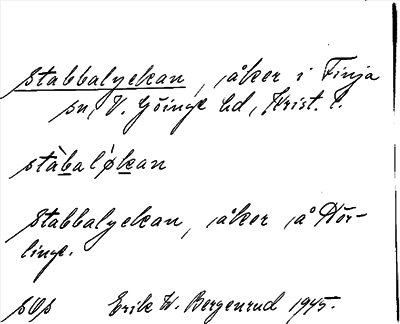 Stabbalyckan, åker i Finja
sn, V. Göinge hd, Krist. l.
stàbaløkan
Stabbalyckan, åker å Hör-
linge.
sOs Erik W. Bergenrud 1945.